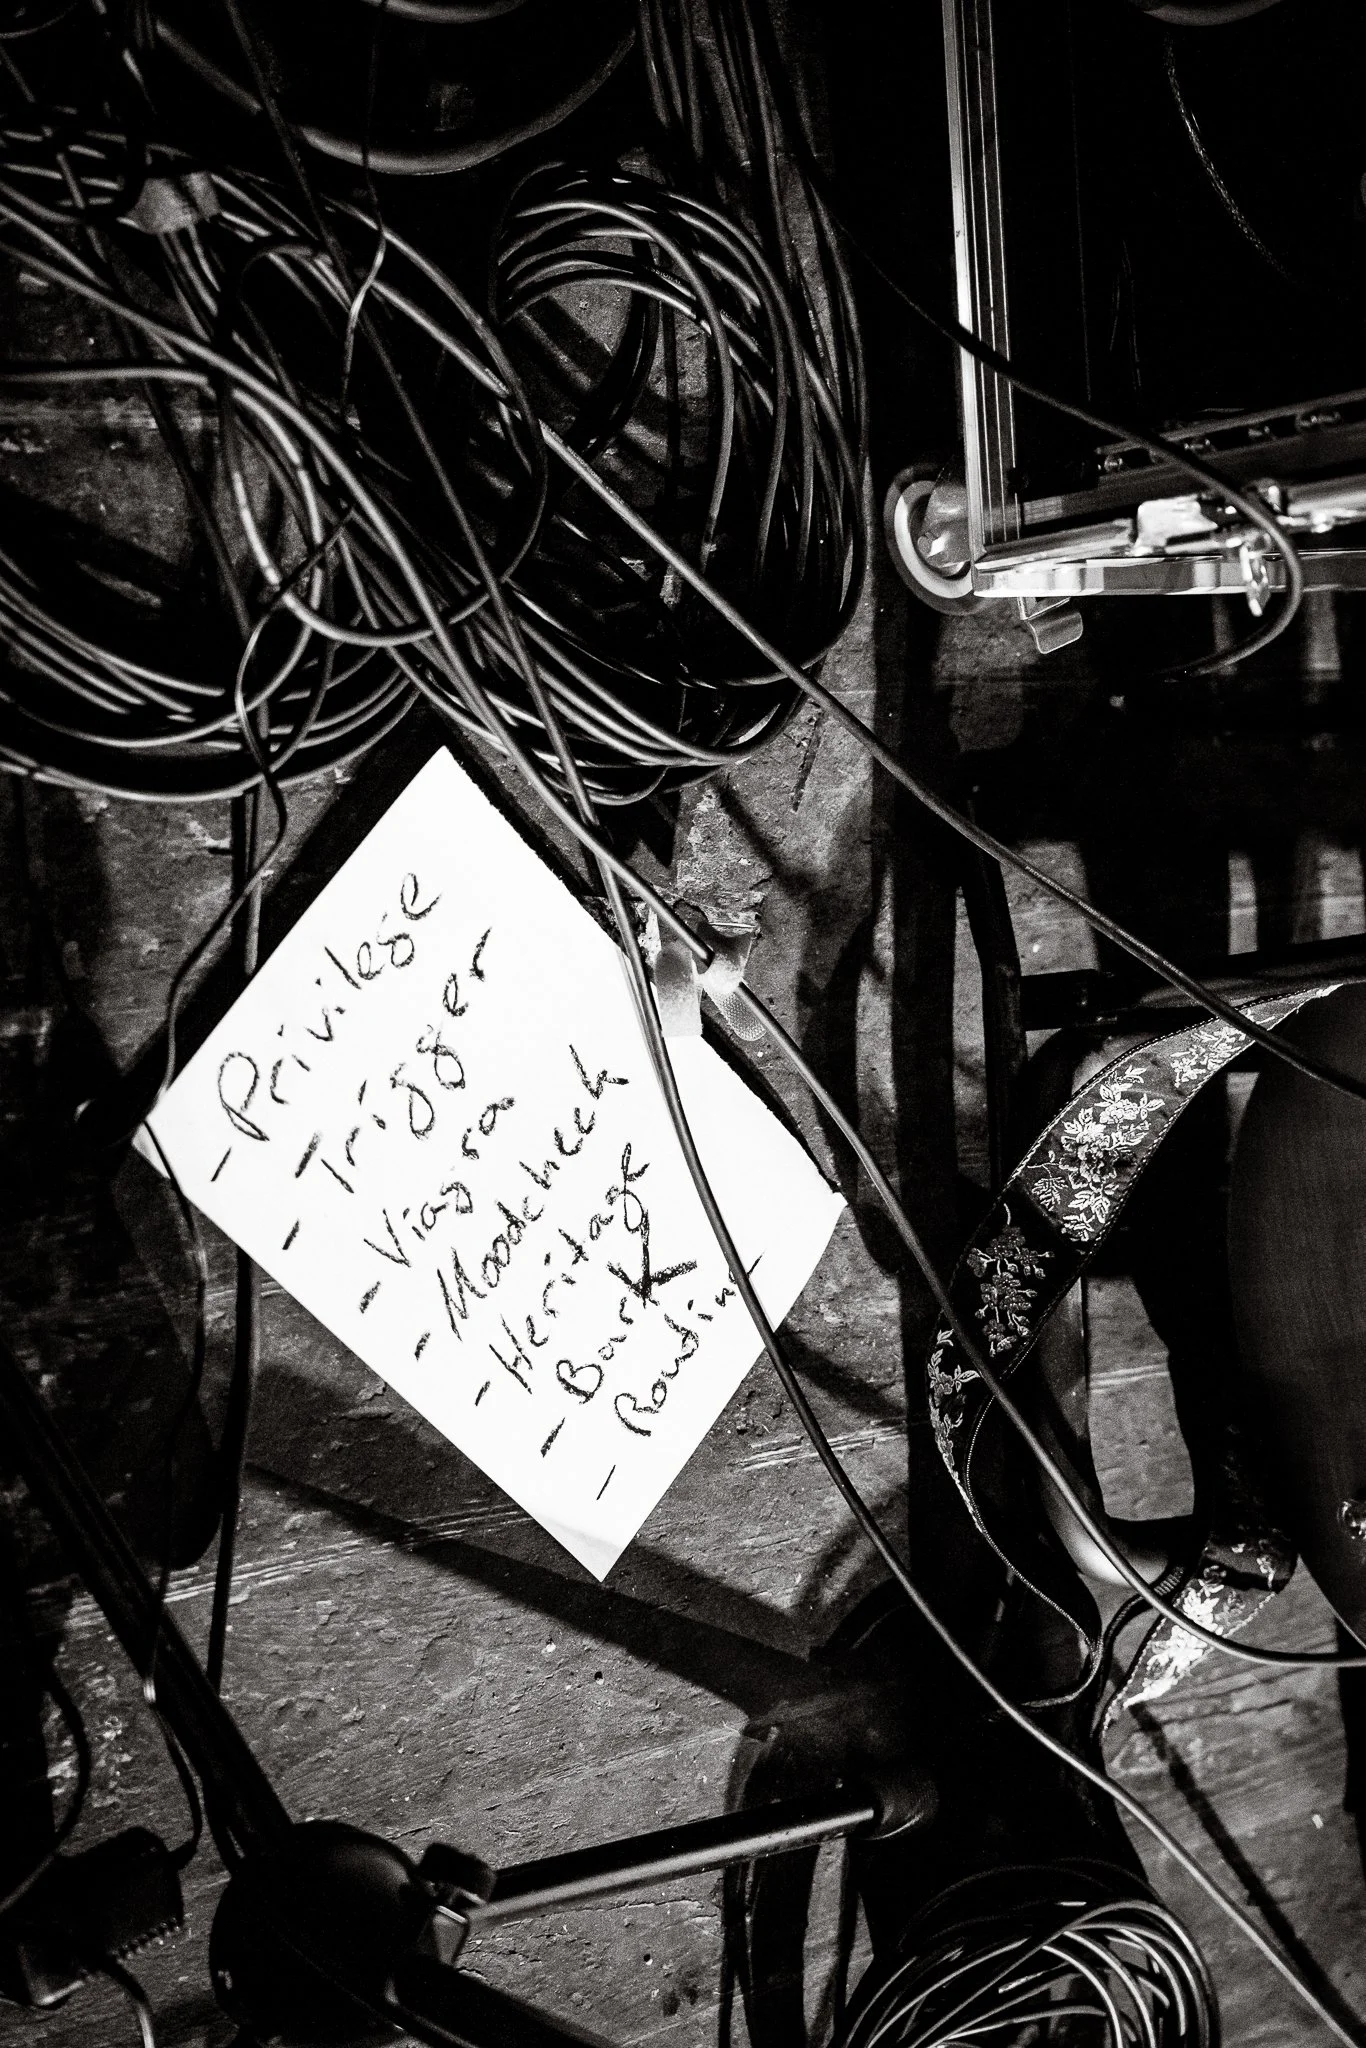 - Privilege
- Trigger
- Viagra
- Moodcheck
- Heritage
- Bark
- Routine